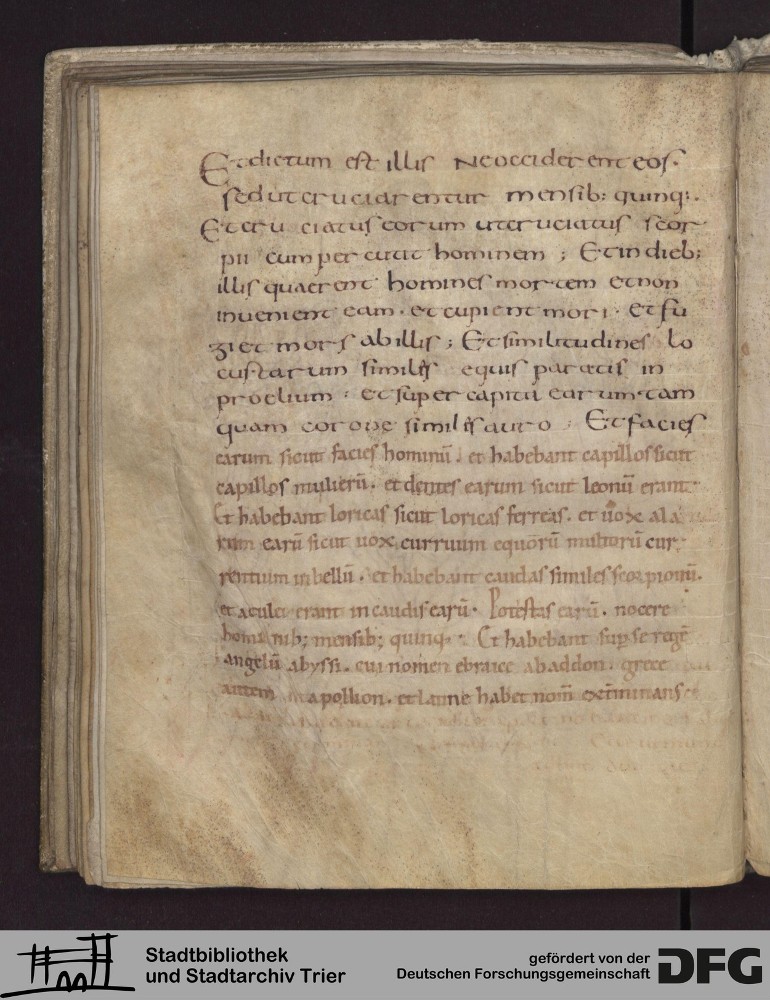 Et dictum est illis Ne occiderent eos.
sed ut cruciarentur mensib; quinq;.
Et cruciatus eorum ut cruciatus scor
pii cum percutit hominem ; Et in dieb;
illis quaerent homines mortem et non
invenient eam . et cupient mori . et fu
giet mors ab illis ; Et similitudines lo
custarum similes equis paratis in
proelium . et super capita earum tam
quam corone similes auro . Et facies
earum sicut facies hominū . et habebant capillos sicut
capillos mulierū . et dentes earum sicut leonū erant .
Et habebant loricas sicut loricas ferreas . et uox ala
rum earū sicut uox curruum equorū multorū cur
rentium in bellū . et habebant caudas similes scorpionū .
et aculei erant in caudis earū . Potestas earū . nocere
hominib; mensib; quinq; . Et habebant sup se regē
angelū abyssi . cui nomen ebraice abaddon . grece
autem apollion . et latine habet nom̄ exterminans
Stadtbibliothek
und Stadtarchiv Trier
gefördert von der
Deutschen Forschungsgemeinschaft
DFG